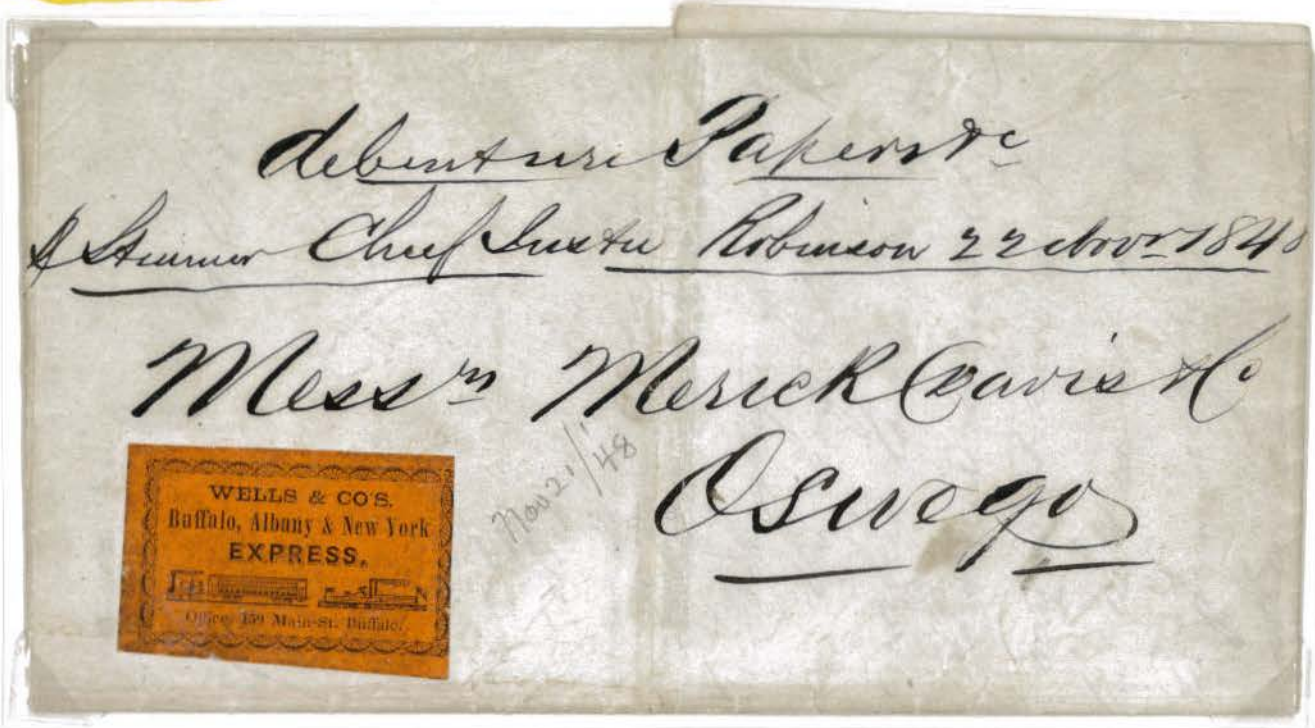 debenture Papers &c
⅌ Steamer Chief Justice Robinson 22 Novr 1848
Messrs Merick Davis & Co
Oswego
Nov 21/48
WELLS & CO'S.
Buffalo, Albany & New York
EXPRESS,
Office, 159 Main-St. Buffalo.